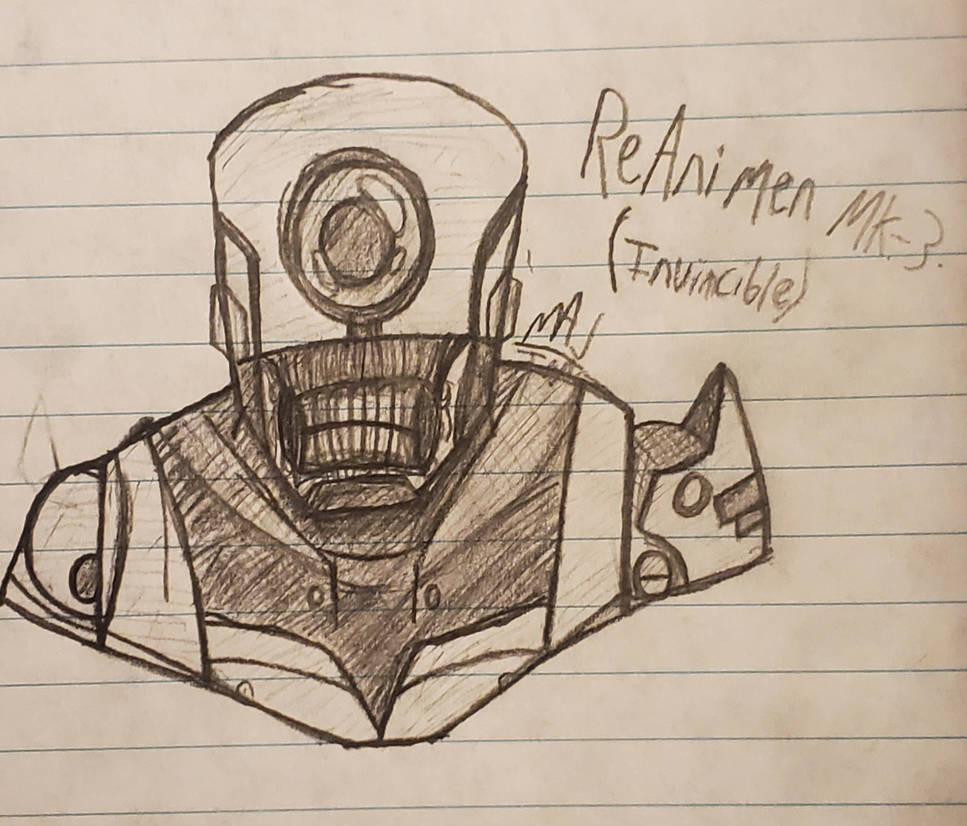 ReAnimen Mk-3.
(Invincible)
MAJ